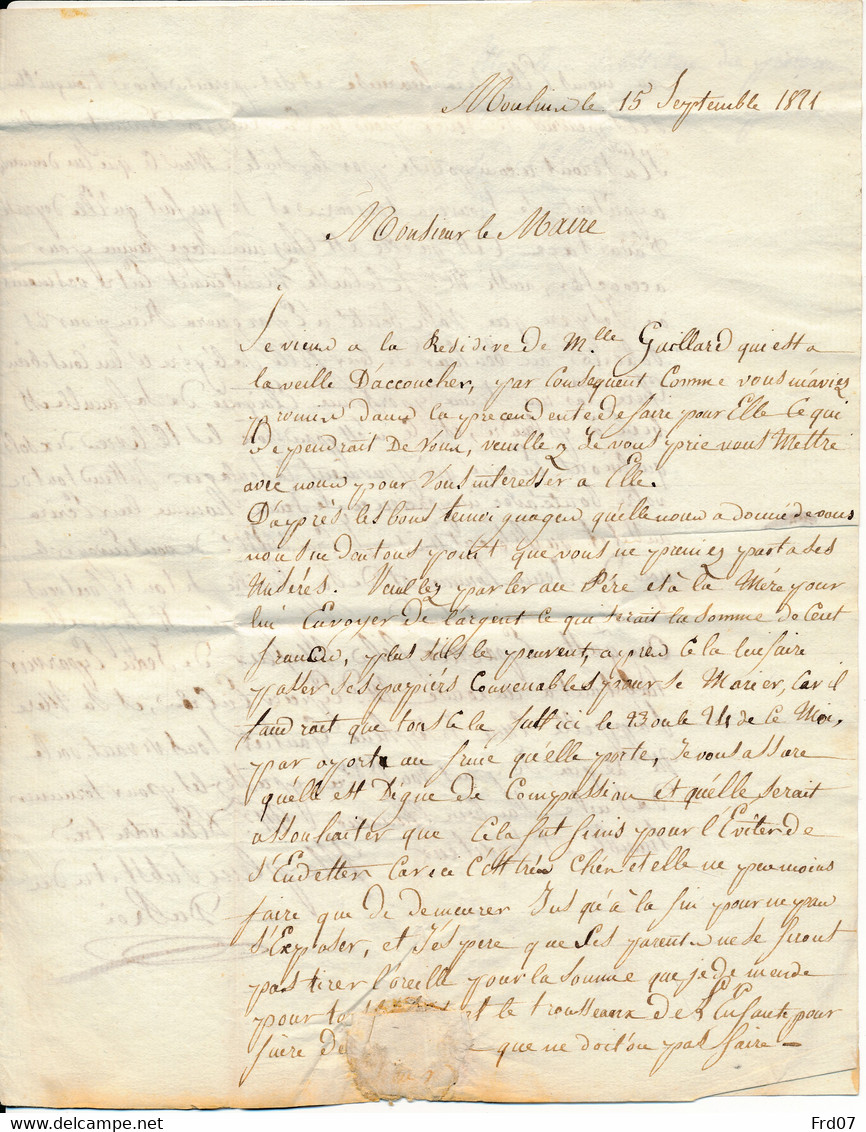 Moulins le 15 Septembre 1821
Monsieur le Maire
Je viens a la Residive de Mlle Gaillard qui est a
la veille D'accoucher, par Consequent Comme vous m'aviez
promis dans la precendente de faire pour Elle Ce qui
Dependrait De Vous, veuillez Je vous prie vous Mettre
avec nous pour Vous interesser a Elle.
D'après les bons temoiquages qu'elle nous a donné de vous
nous ne doutons point que vous ne preniez part a ses
Miséres. Veuillez parler au Pére et à la Mére pour
lui Envoyer De l'argent ce qui serait la somme de Cent
francs, plus s'ils le peuvent, apres Cela lui faire
passer ses papiers Convenables pour se Marier, Car il
faudrait que tout Cela futt ici le 23 ou le 24 de Ce Mois,
par aporta au fruit qu'elle porte, Je vous assure
qu'elle est Digne de Compassion et qu'elle serait
assouhaiter que Cela fut finis pour l'Eviter de
s'Endetter Car ici C'est très Chér et elle ne peu moins
faire que de demeurer Jusqu'à la fin pour ne pas
s'Exposer, et J'éspere que Ses parents ne se feront
pas tirer l'oreille pour la somme que je demende
pour et le trousseaux de l'Enfants pour
que ne doit'on pas faire -
Frd07